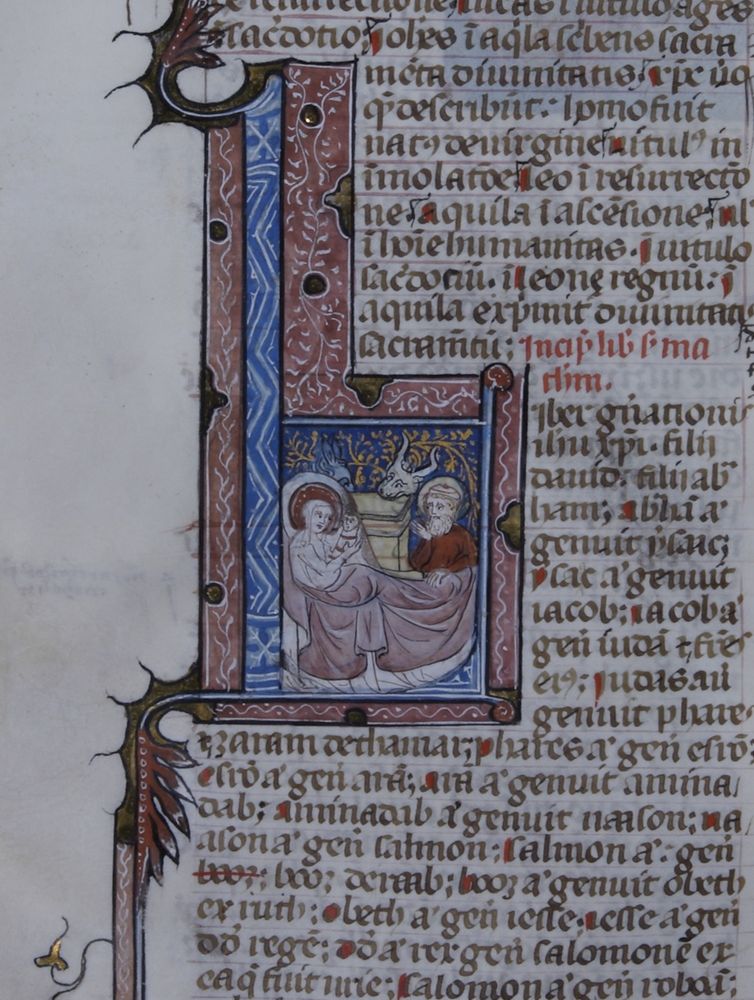 sac̄dotio; ioh̄es ī aq̄la sc̄bens sacra
mēta diuinitatis; xp̄c u̅o
q̄ describūt: Ip̄mo fuit
nat⁹ de uirgine; uitul⁹ in
īmolatōe; leo ī resurrectō
ne; aquila ī ascēsione; ul̄
ī hoīe humanitas. ī uitulo
sac̄dociū. ī leone regnū. ī
aquila exp̄mit̄ diuinitatis
sacram̄tū; Incip̄ lib̄ s̄ ma
thm̄.
Liber gn̄ationis
ih̄u xp̄i. filii
dauid. filii ab̄
ham; abhā a̅
genuit ysaac;
ysac a̅ genuit
iacob; iacob a̅
gen̄ iudā ⁊ fr̄es
ei⁹; iudas aū
genuit phares
⁊ zaram de thamar; phares a̅ gen̄ esrō;
esrō a̅ gen̄ arā; arā a̅ genuit amina
dab; aminadab a̅ genuit naason; na
ason a̅ gen̄ salmon; salmon a̅: gen̄
booz; booz de raab; booz a̅ genuit obeth
ex ruth; obeth a̅ gen̄ iesse; iesse a̅ gen̄
dd̄ regē; dd̄ a̅ rex gen̄ salomonē ex
ea q̄ fuit urie; salomon a̅ gen̄ roboā;